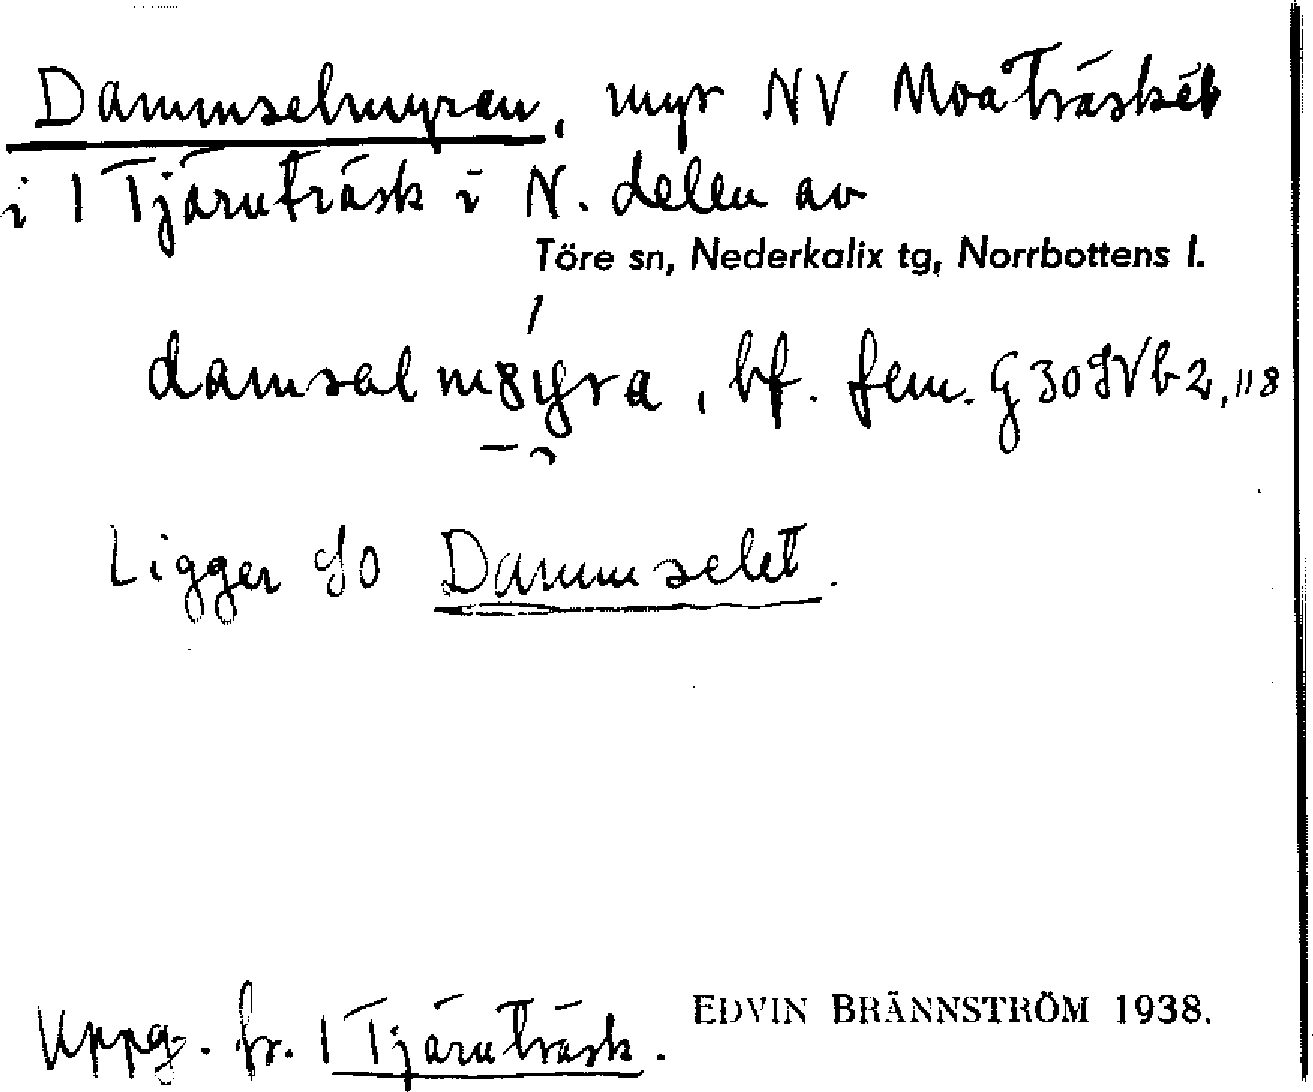 Dammselmyren, myr NV Moåträsket
i 1 Tjärnträsk i N. delen av
Töre sn, Nederkalix tg, Norrbottens l.
bf. fem.
Ligger SO Dammselet.
Uppg. fr. 1 Tjärnträsk.
EDVIN BRÄNNSTRÖM 1938.